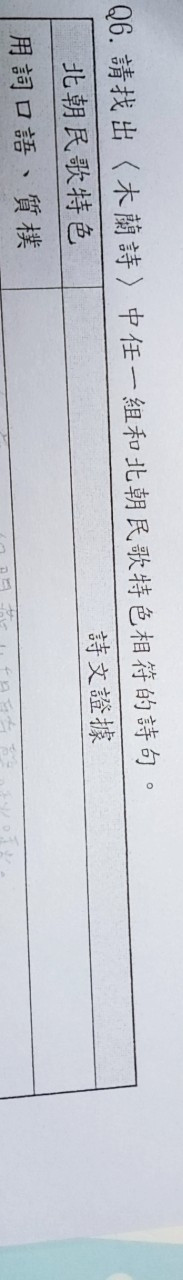 Q6. 請找出〈木蘭詩〉中任一組和北朝民歌特色相符的詩句。
北朝民歌特色
詩文證據
用詞口語、質樸